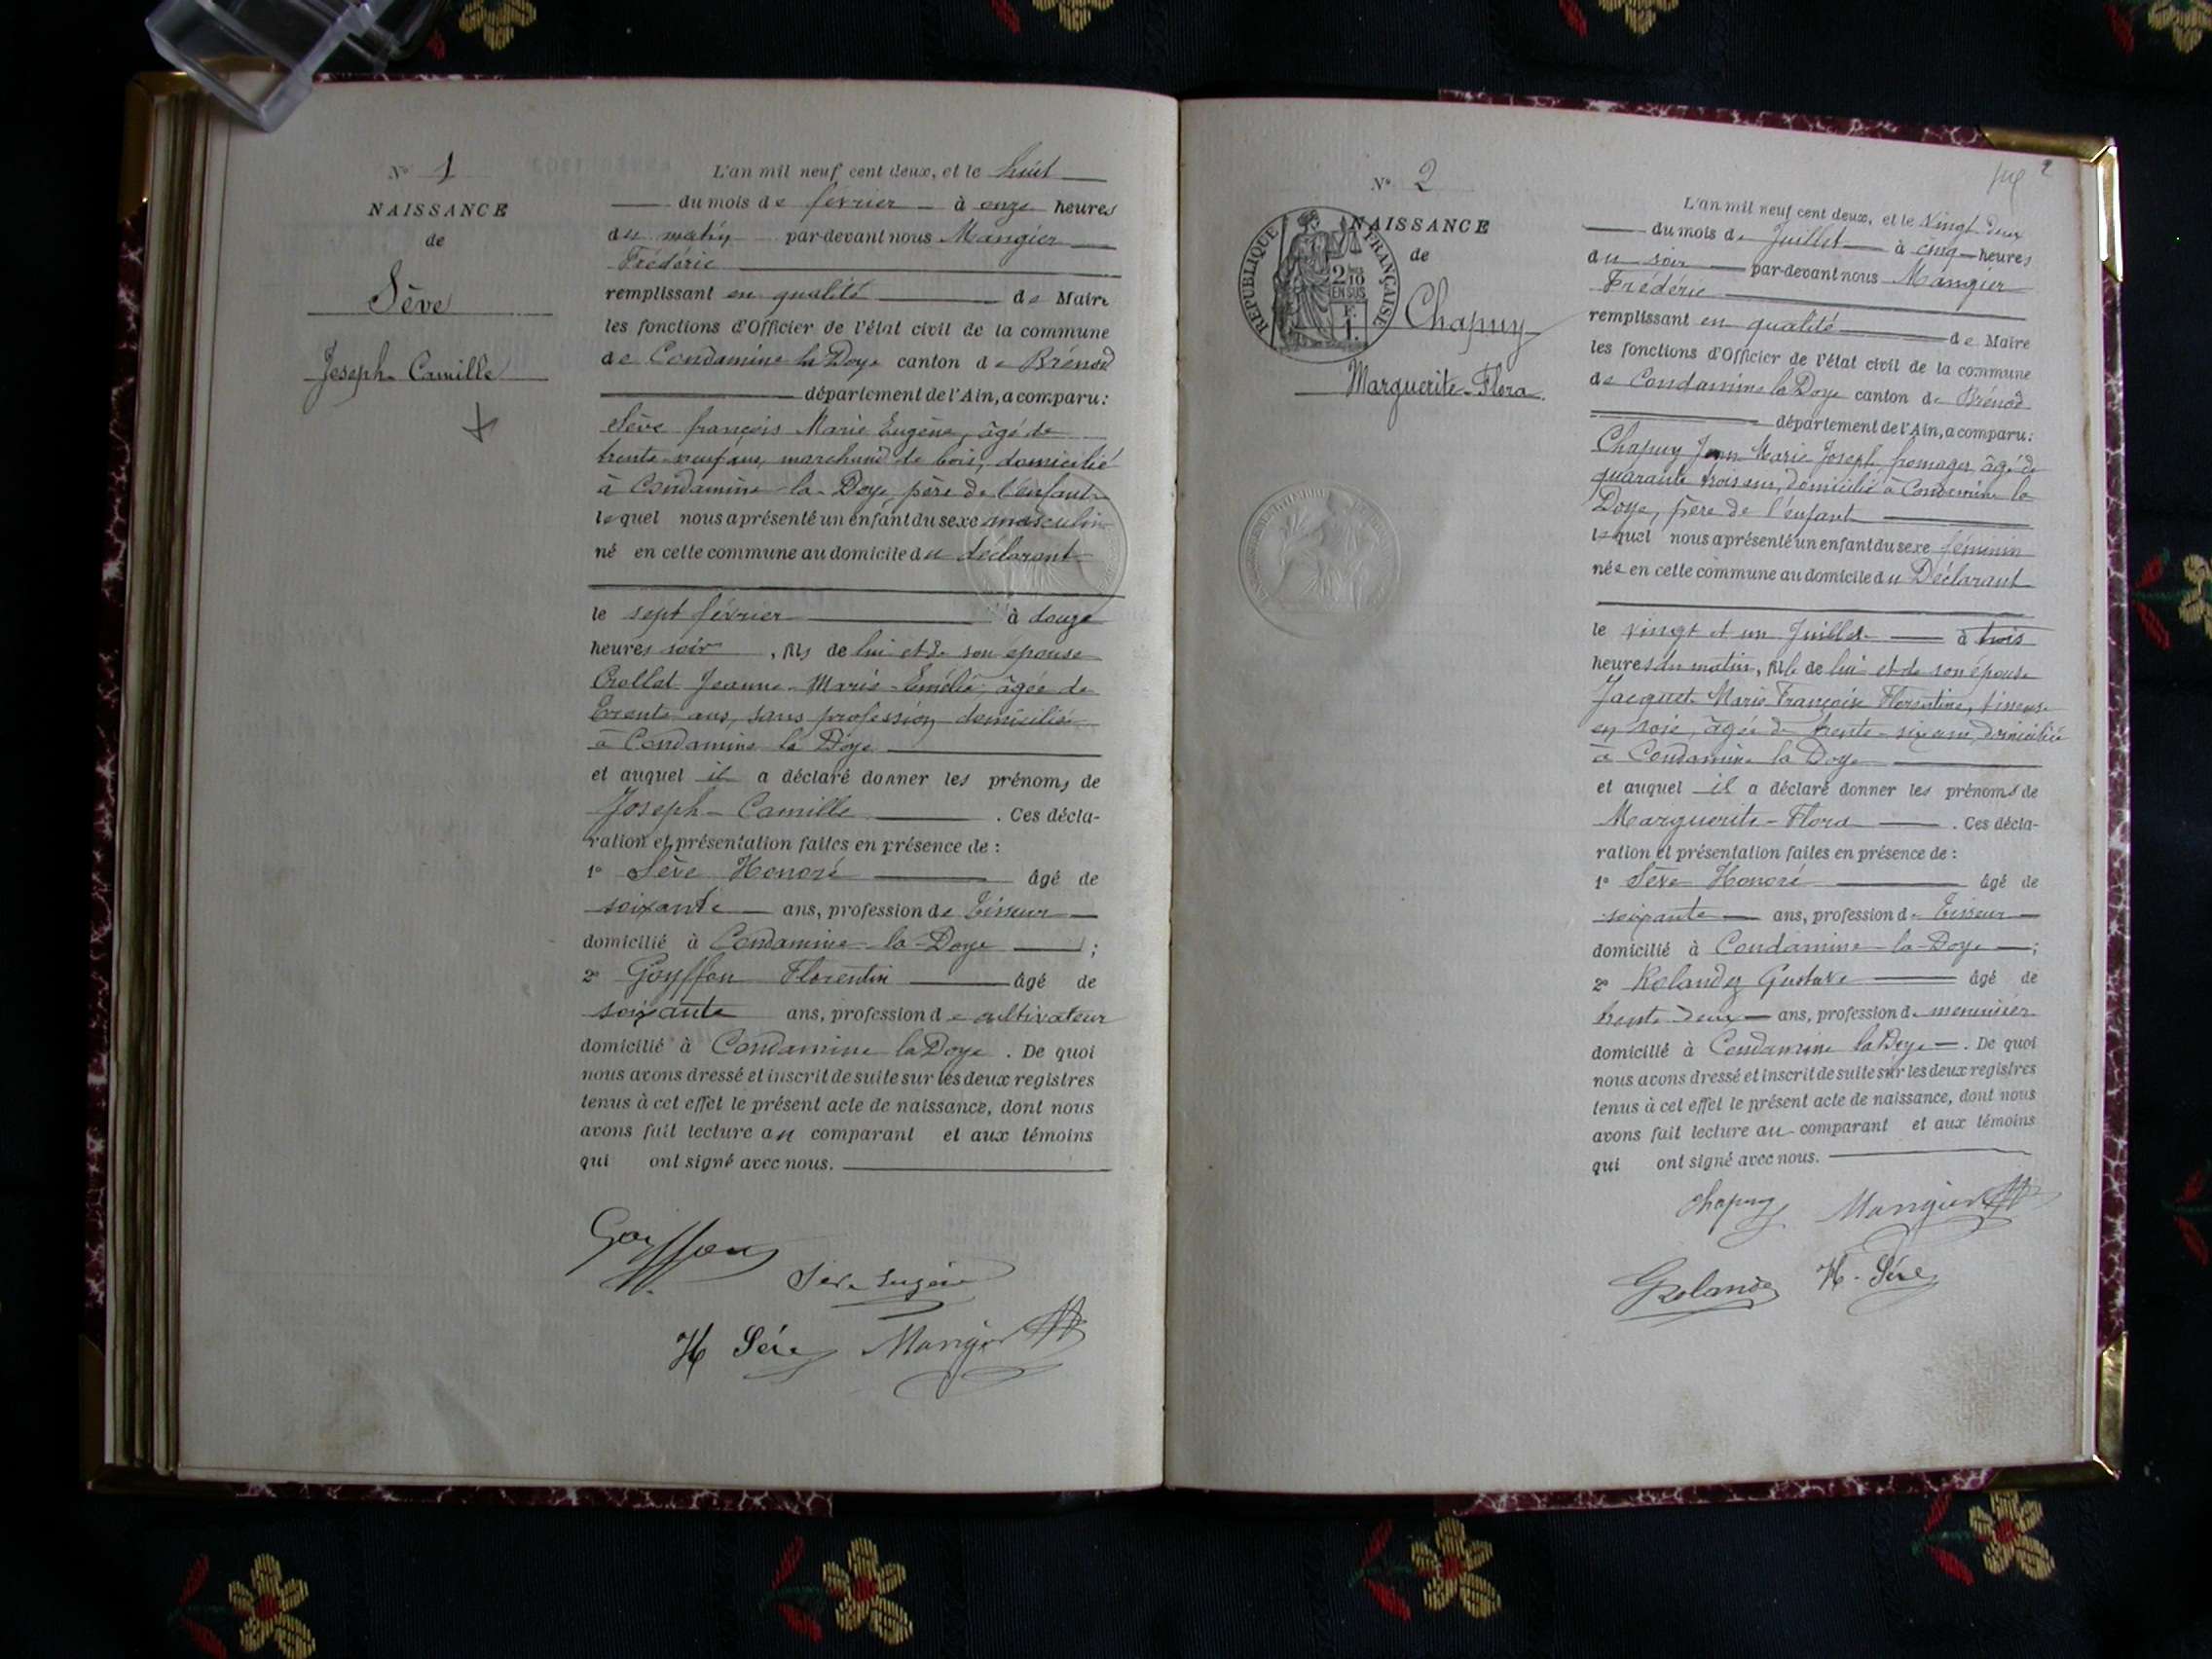 N° 1
NAISSANCE
de
Sève
Joseph Camille
L'an mil neuf cent deux, et le huit
du mois de février à onze heures
du matin par-devant nous Mangier
Frédéric
remplissant en qualité de Maire
les fonctions d'Officier de l'état civil de la commune
de Condamine la Doye canton de Brénod
département de l'Ain, a comparu :
Sève françois Marie Eugène, âgé de
trente-neuf ans, marchand de bois, domicilié
à Condamine-la-Doye, père de l'enfant
lequel nous a présenté un enfant du sexe masculin
né en cette commune au domicile du déclarant
le sept février à douze
heures soir, fils de lui et de son épouse
Crollet Jeanne-Marie-Emélie, âgée de
trente ans, sans profession domiciliée
à Condamine la Doye
et auquel il a déclaré donner les prénoms de
Joseph-Camille. Ces décla-
ration et présentation faites en présence de :
1° Sève Honoré âgé de
soixante ans, profession de tisseur
domicilié à Condamine-la-Doye ;
2° Goyffon Florentin âgé de
soixante ans, profession de cultivateur
domicilié à Condamine la Doye. De quoi
nous avons dressé et inscrit de suite sur les deux registres
tenus à cet effet le présent acte de naissance, dont nous
avons fait lecture au comparant et aux témoins
qui ont signé avec nous.
Goyffon
Sève Eugène
H Sève Mangier
2
N° 2
NAISSANCE
de
REPUBLIQUE FRANÇAISE
2/10
EN SUS
1 F.
Chapuy
Marguerite-Flora.
L'an mil neuf cent deux, et le vingt deux
du mois de Juillet à cinq heures
du soir par-devant nous Mangier
Frédéric
remplissant en qualité de Maire
les fonctions d'Officier de l'état civil de la commune
de Condamine la Doye canton de Brénod
département de l'Ain, a comparu :
Chapuy Jean Marie Joseph, fromager, âgé de
quarante trois ans, domicilié à Condamine la
Doye, père de l'enfant
lequel nous a présenté un enfant du sexe féminin
née en cette commune au domicile du Déclarant
le vingt et un Juillet à trois
heures du matin, fille de lui et de son épouse
Jacquet Marie Françoise Florentine, tisseuse
en soie, âgée de trente-six ans, domiciliée
à Condamine la Doye
et auquel il a déclaré donner les prénoms de
Marguerite-Flora. Ces décla-
ration et présentation faites en présence de :
1° Sève Honoré âgé de
soixante ans, profession de tisseur
domicilié à Condamine-la-Doye ;
2° Rolandez Gustave âgé de
trente deux ans, profession de menuisier
domicilié à Condamine la Doye. De quoi
nous avons dressé et inscrit de suite sur les deux registres
tenus à cet effet le présent acte de naissance, dont nous
avons fait lecture au comparant et aux témoins
qui ont signé avec nous.
Chapuy Mangier
GRolandez H. Sève